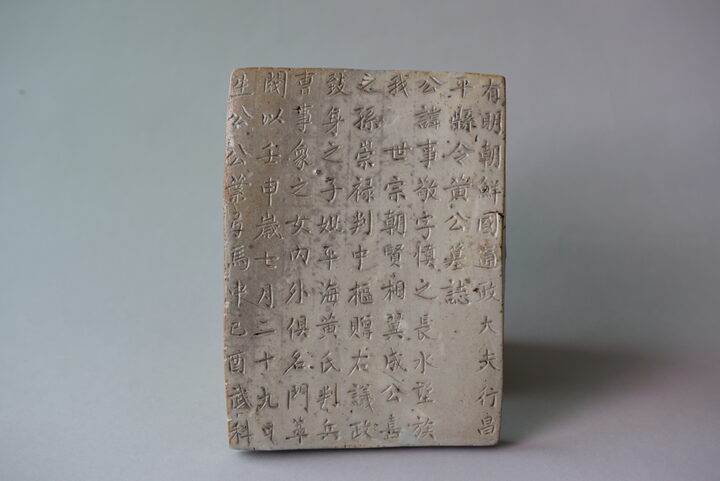 有明朝鮮國通政大夫行昌
平縣令黃公墓誌
公諱事敬字慎之長水望族
我 世宗朝賢相翼成公喜
之孫崇祿判中樞贈右議政
致身之子妣平海黃氏判兵
曹事象之女內外俱名門華
閥以壬申歲七月二十九日
生公公業弓馬中己酉武科